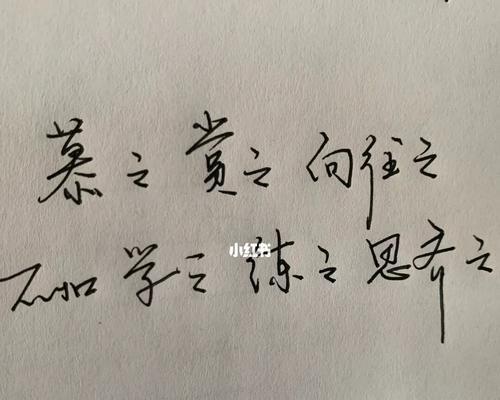 慕之 赏之 向往之
小红书
不如 学之 练之 思齐之